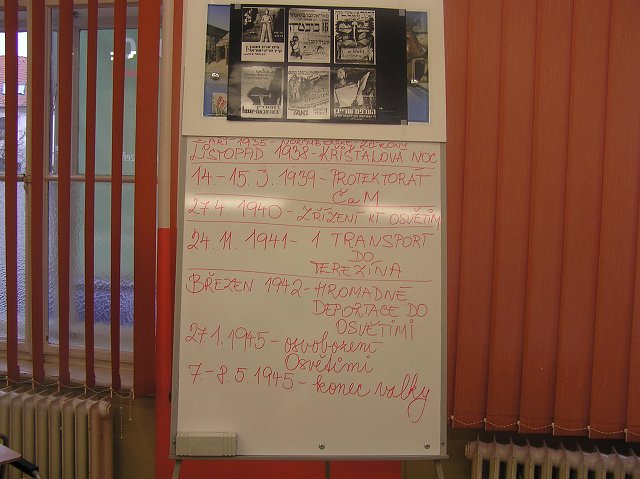 ZÁŘÍ 1935 - NORIMBERSKÉ ZÁKONY
LISTOPAD 1938 - KŘIŠŤÁLOVÁ NOC
14. - 15. 3. 1939 - PROTEKTORÁT
ČaM
27.4. 1940 - ZŘÍZENÍ KT OSVĚTIM
24. 11. 1941 - 1. TRANSPORT
DO
TEREZÍNA
BŘEZEN 1942 - HROMADNÉ
DEPORTACE DO
OSVĚTIMI
27.1.1945 - osvobození
Osvětimi
7. - 8. 5. 1945 - konec války